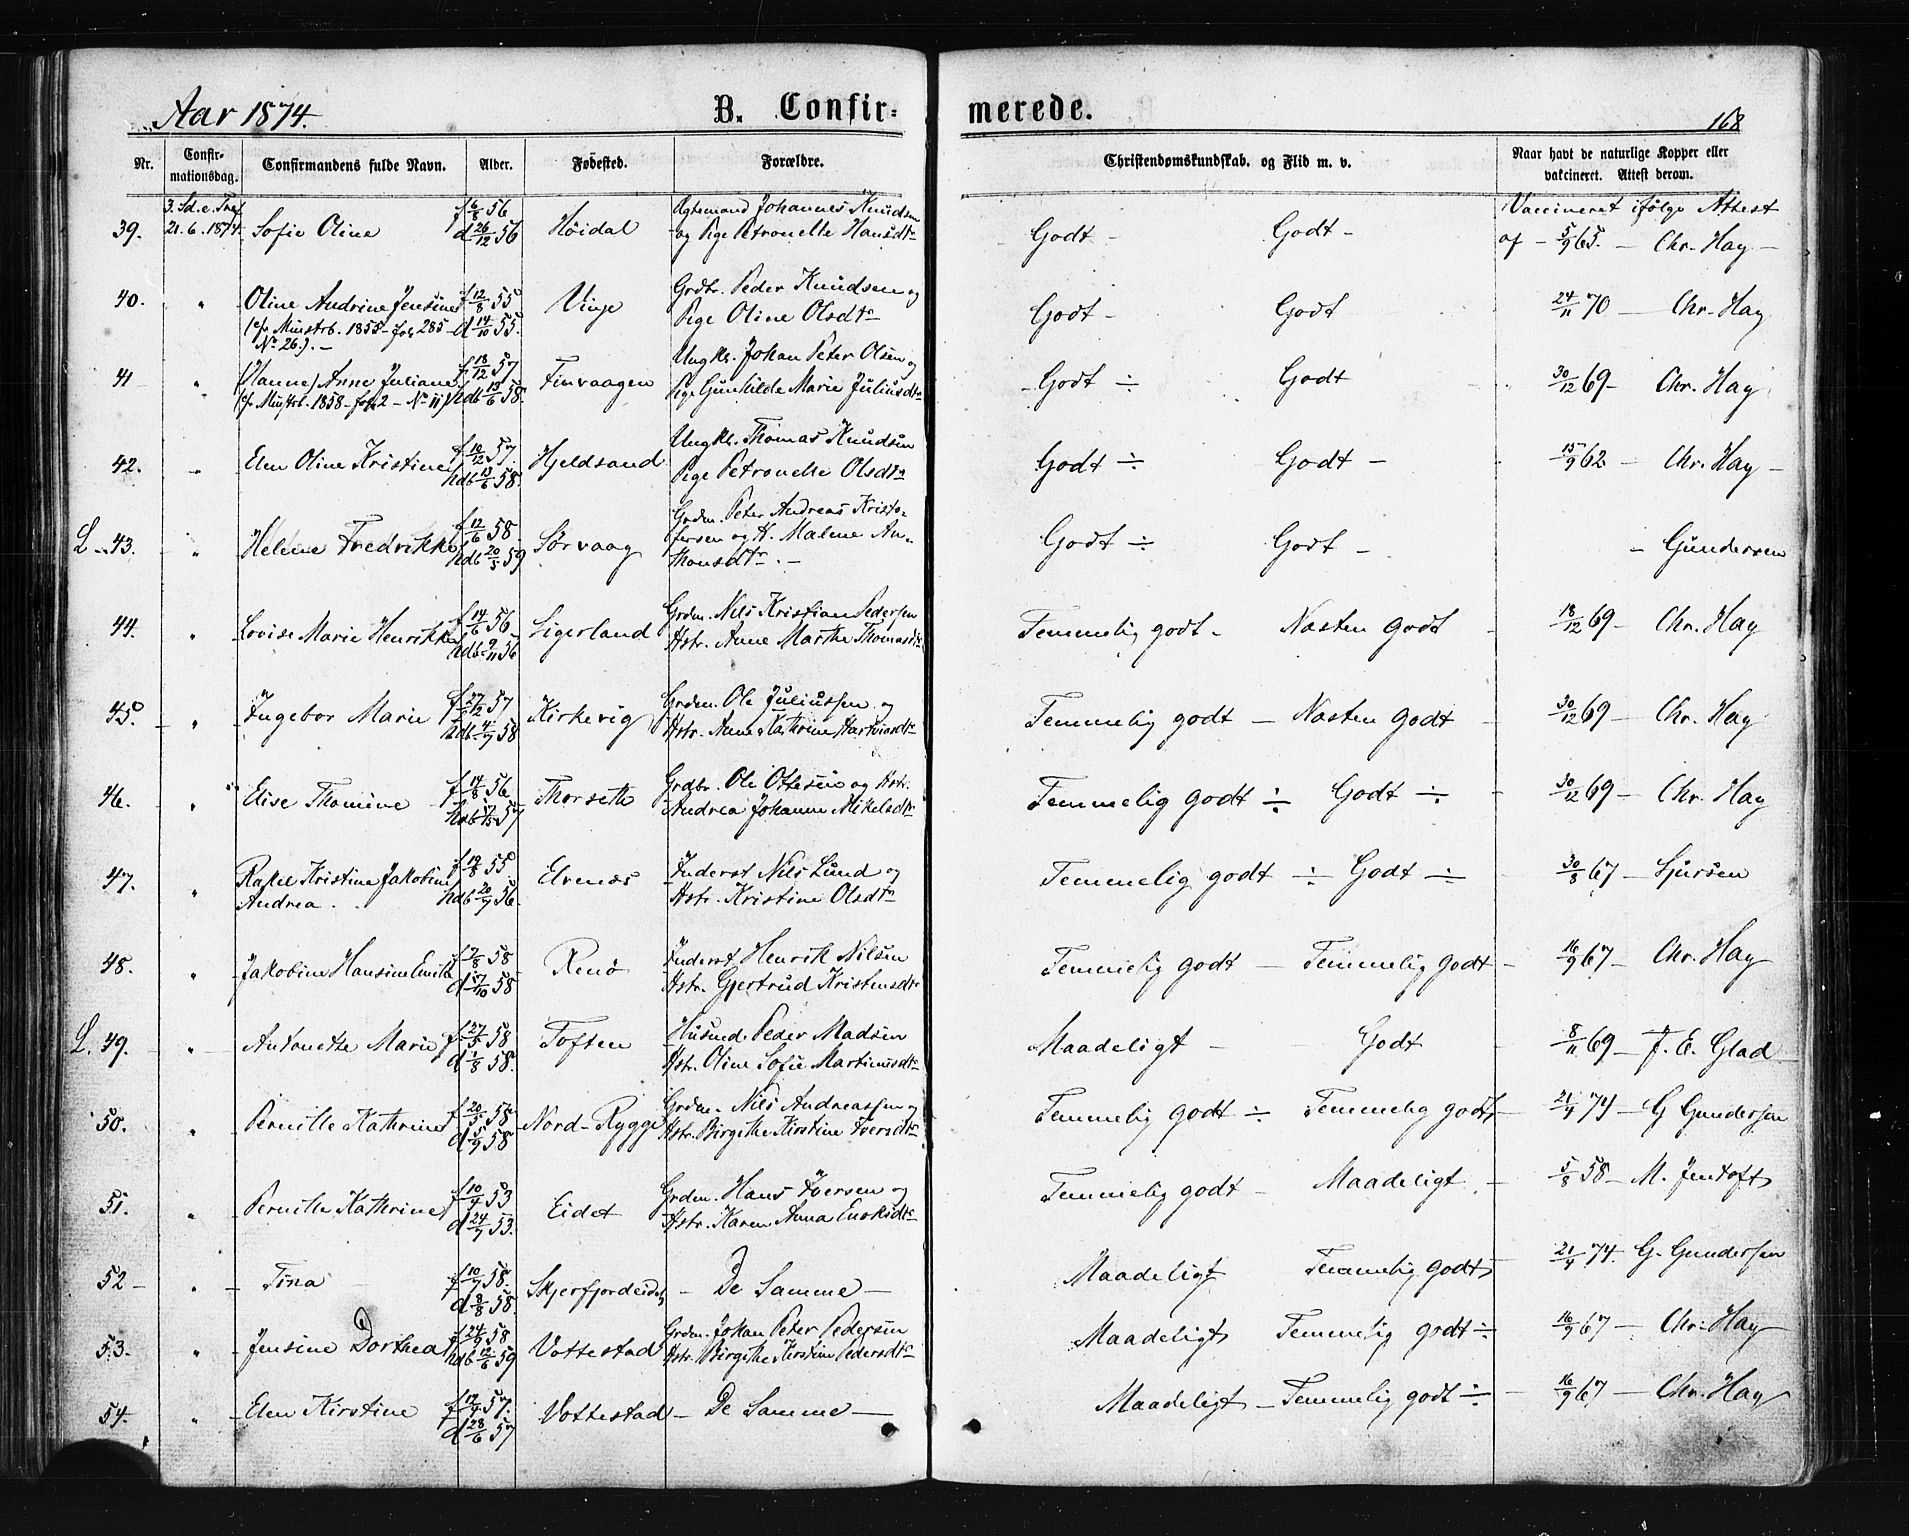 Aar 1874. B. Confir- merede. 168
Nr. Confir- mationsdag. Confirmandens fulde Navn. Alder. Fødested. Forældre. Christendomskundskab. og Flid m. v. Naar havt de naturlige Kopper eller vakcineret. Attest derom.
3. Sd. e. Tref. f 6/8 56 Ægtemand Johannes Knudsen Vaccineret ifølge Attest
39. 21. 6. 1874. Sofie Oline d 26/12 56 Høidal og Pige Petronelle Hansdtr Godt - Godt - af - 5/9 65. - Chr. Hay -
40. " Oline Andrine Jensine f 12/8 55 Vinje Grdbr. Peder Knudsen og Godt - Godt 24/11 70 - Chr. Hay
(cfr Minstrb. 1855 - fol 285 - d 14/10 55. Pige Oline Olsdtr
No 26.). -
41 " (Hanne) Anne Juliane f 18/12 57 Finvaagen Ungkl. Johan Peter Olsen og - Godt ÷ Godt 30/12 69 - Chr. Hay
(cfr Minstrb. 1858 - fol 2 - No 11) hdb 13/6 58. Pige Gunhilde Marie Juliusdtr
42. " Elen Oline Kristine f 10/12 57. Hjeldsand Ungkl. Thomas Knudsen Godt ÷ Godt - 15/9 62 - Chr. Hay -
hdb 13/6 58. Pige Petronelle Olsdtr
L - 43. " Helene Fredrikke f 12/6 58. Sørvaag Grdm. Peter Andreas Kristo- Godt ÷ Godt - - Gundersen
hdb 20/5 59 fersen og H. Malene An-
thonsdtr. -
44. " Lovise Marie Henrikke f 14/6 56 Ligerland Grdm. Nils Kristian Pedersen Temmelig godt - Næsten Godt - 18/12 69 - Chr. Hay
hdb 9/11 56 Hstr. Anne Marthe Thomasdtr
45. " Ingebor Marie f 27/12 57 Kirkevig Grdm. Ole Juliussen og Temmelig godt - Næsten Godt - 30/12 69 - Chr. Hay
hdb 4/7 58 Hstr. Anne Kathrine Hartvigdtr
46. " Elise Thomine f 14/8 56 Thorseth Grdbr. Ole Ottesen og Hstr. Temmelig godt ÷ Godt ÷ - 30/12 69 - Chr. Hay
hdb 17/5 57 Andrea Johanne Mikelsdtr
47. " Rakel Kristine Jakobine f 19/8 55 Elvenæs Inderst Nils Lund og Temmelig godt ÷ Godt ÷ 30/8 67 - Sjursen
Andrea. hdb 20/7 56. Hstr. Kristine Olsdtr
48. " Jakobine Hansine Emilie f 7/8 58 Renø Inderst Henrik Nilsen Temmelig godt - Temmelig godt - 16/9 67 - Chr. Hay
d 17/10 58 Hstr. Gjertrud Kristensdtr
L. 49. " Antonette Marie f 27/5 58 Toften Husmd. Peder Madsen Maadeligt - Godt - 8/11 69 - F. E. Glad
d 1/8 58. Hstr. Oline Sofie Martinusdtr
50. " Pernille Kathrine f 20/5 58 Nord-Rygge Grdm. Nils Andreassen og Temmelig godt ÷ Temmelig godt - 21/4 74 - G Gundersen
d 5/9 58 Hstr. Birgithe Kirstine Iversdtr
51. " Pernille Kathrine f 10/4 53 Eidet Grdm. Hans Iversen og Temmelig godt - Maadeligt - 5/8 58 - M. Jentoft
d 24/7 53. Hstr. Karen Anna Enoksdtr
52 - " Tina f 10/7 58. Skjerfjordeidet - De Samme - Maadeligt Temmelig godt 21/4 74. G. Gundersen
d 8/8 58.
53. " Jensine Dorthea f 24/9 58 Vottestad Grdm. Johan Peter Pedersen Maadeligt Temmelig godt ÷ 16/9 67 - Chr. Hay
hdb 12/6 59 Hstr. Birgithe Kirstine Pedersdtr
54. " Elen Kirstine f 12/4 57. Vottestad - De Samme - Maadeligt - Temmelig godt ÷ - 16/9 67 - Chr. Hay
d 28/6 57